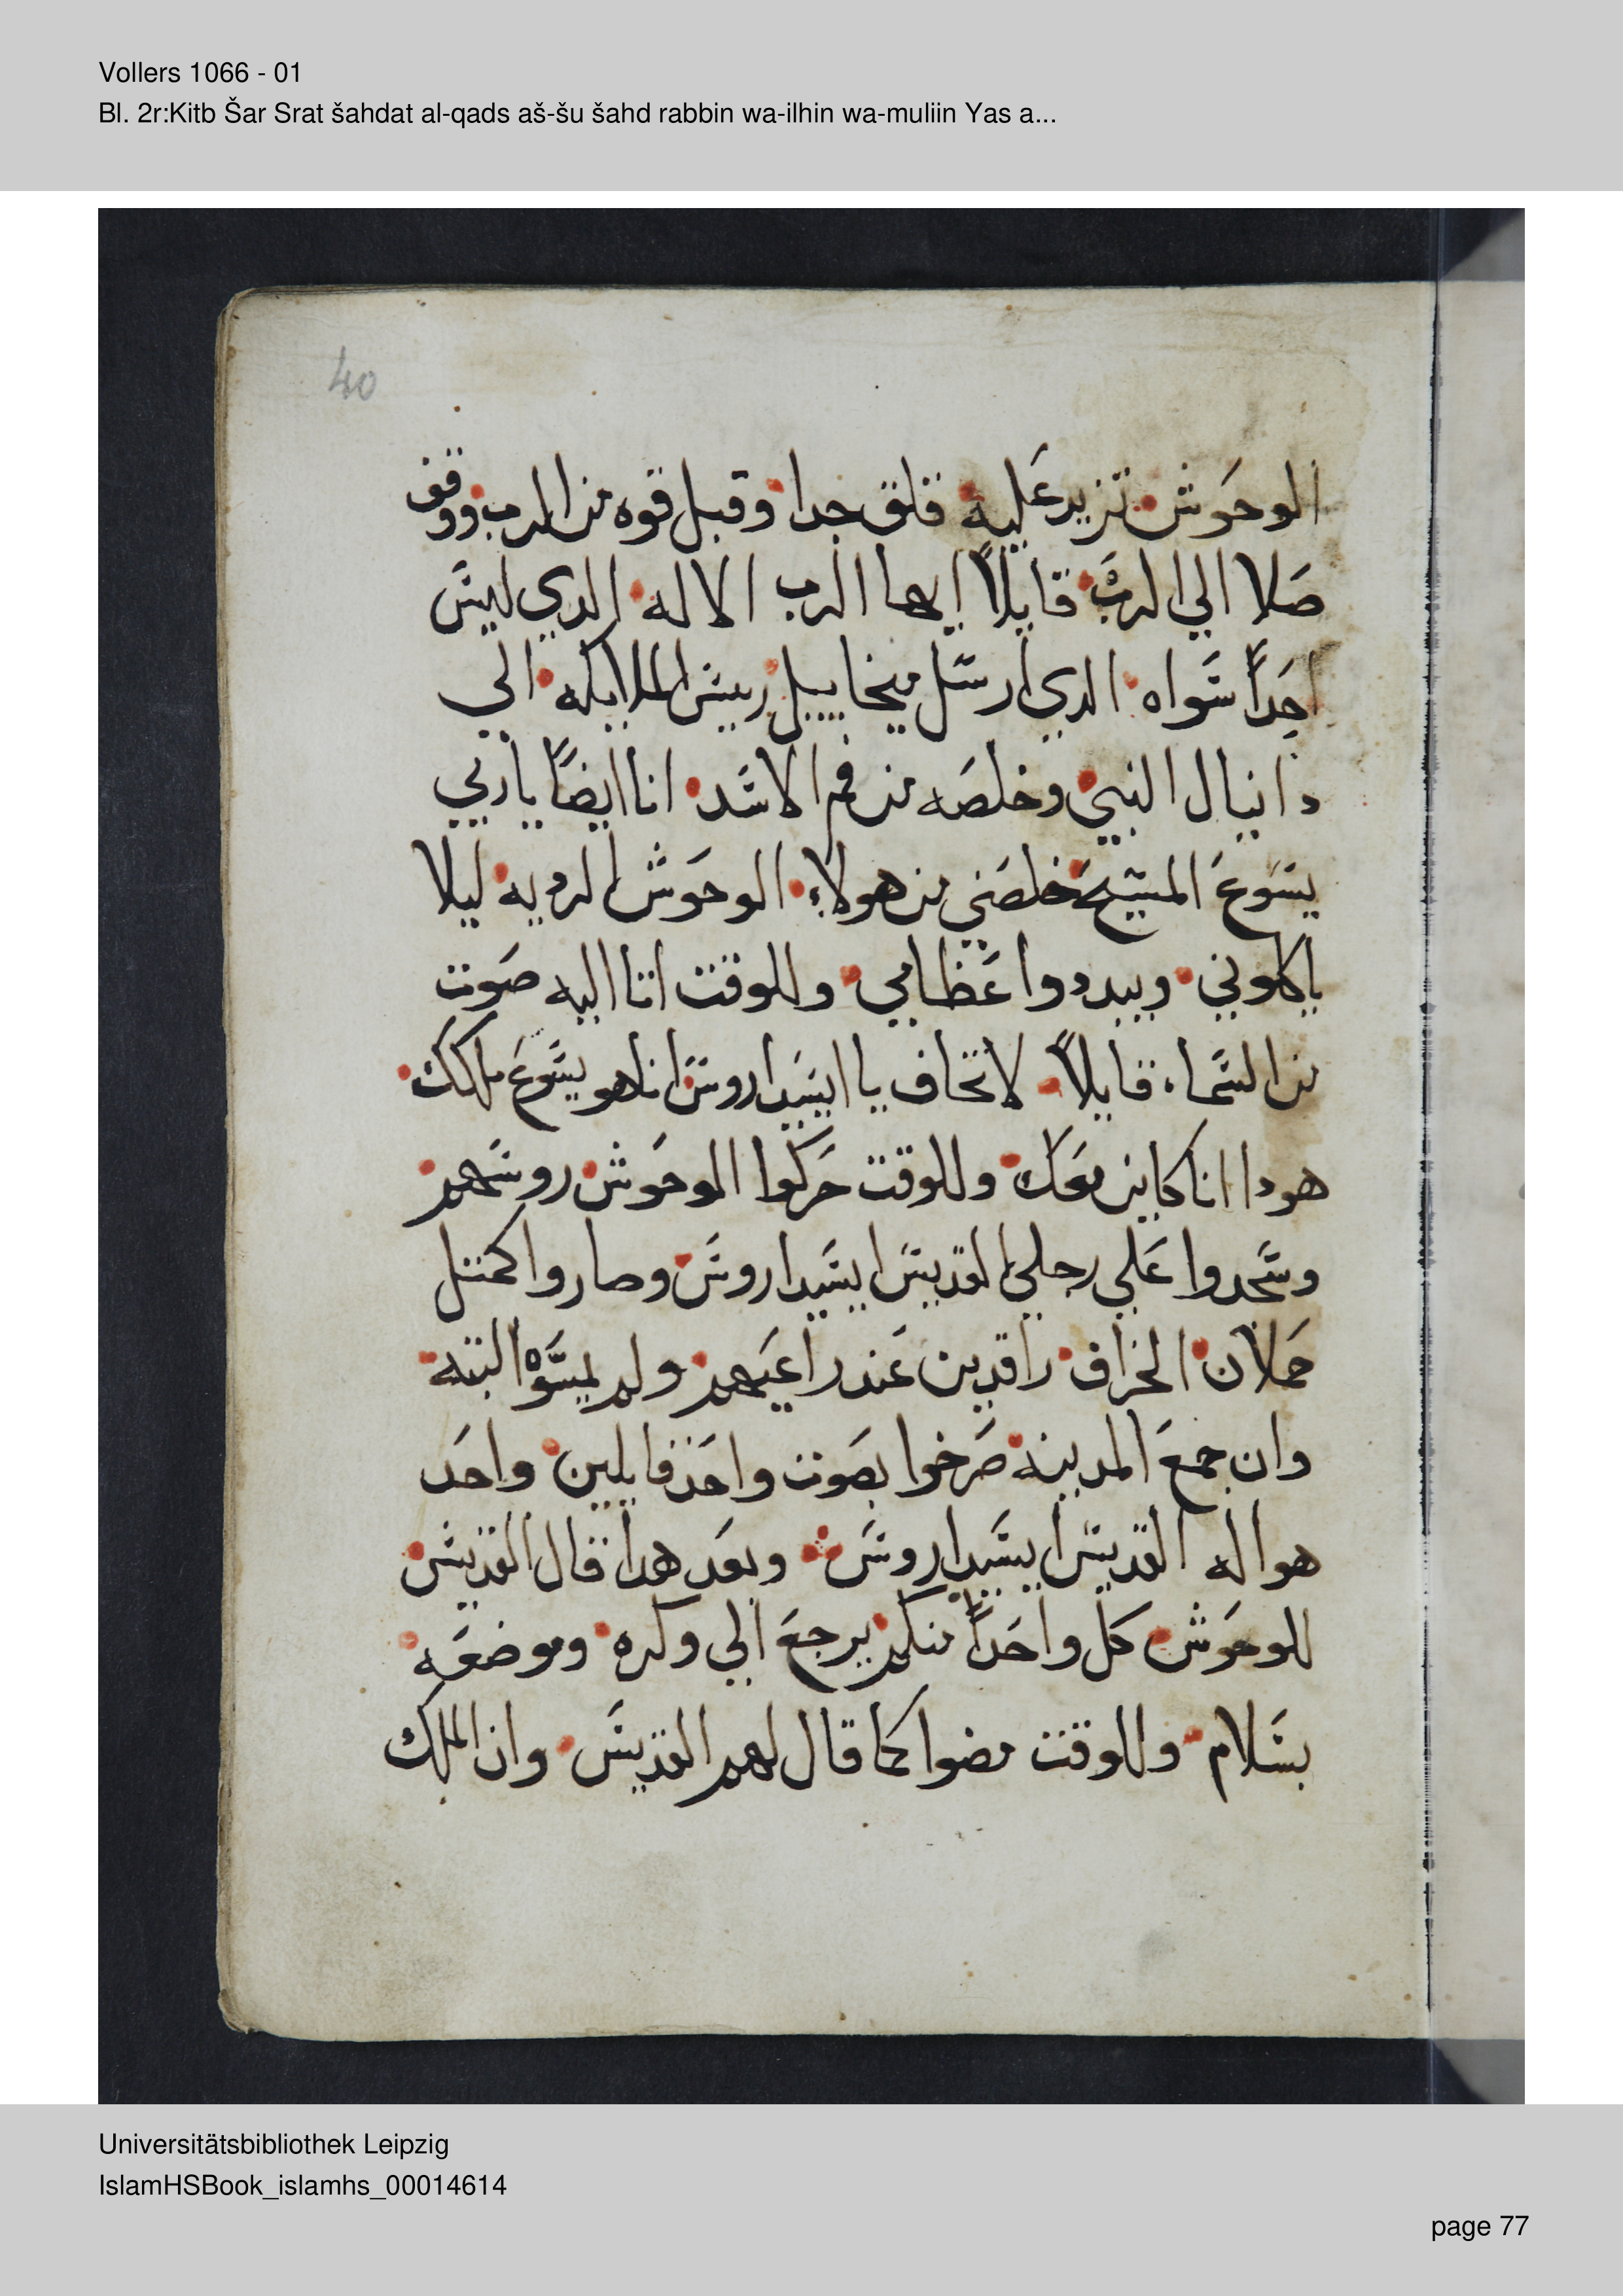 Vollers 1066 - 01
Bl. 2r:Kitb Šar Srat šahdat al-qads aš-šu šahd rabbin wa-ilhin wa-muliin Yas a...
40
الوحوش تزيد عليه قلق جدا وقبل قوه من الرب ووقف
صلا الي الرب قايلاً ايها الرب الاله الدي ليس
احداً سواه الدي ارسل ميخاييل رييس الملايكه الي
دانيال النبي وخلصه من فم الاسد انا ايضاً ياربي
يسوع المسيح خلصني من هولاء الوحوش الرديه ليلا
ياكلوني ويبددوا عظامي وللوقت اتا اليه صوت
من السماء قايلاً لا تخاف يا ايسيداروس انا هو يسوع ملكك
هودا انا كاين معك وللوقت حركوا الوحوش روسهم
وسجدوا علي رجلي القديس ايسيداروس وصاروا كمتل
حملان الخراف راقدين عند راعيهم ولم يمسوا البته
وان جمع المدينه صرخوا بصوت واحد قايلين واحد
هو اله القديس ايسيداروس وبعد هدا قال القديس
للوحوش كل واحداً منكم يرجع الي وكره وموضعه
بسلام وللوقت مضوا كما قال لهم القديس وان الملك
Universitätsbibliothek Leipzig
IslamHSBook_islamhs_00014614
page 77